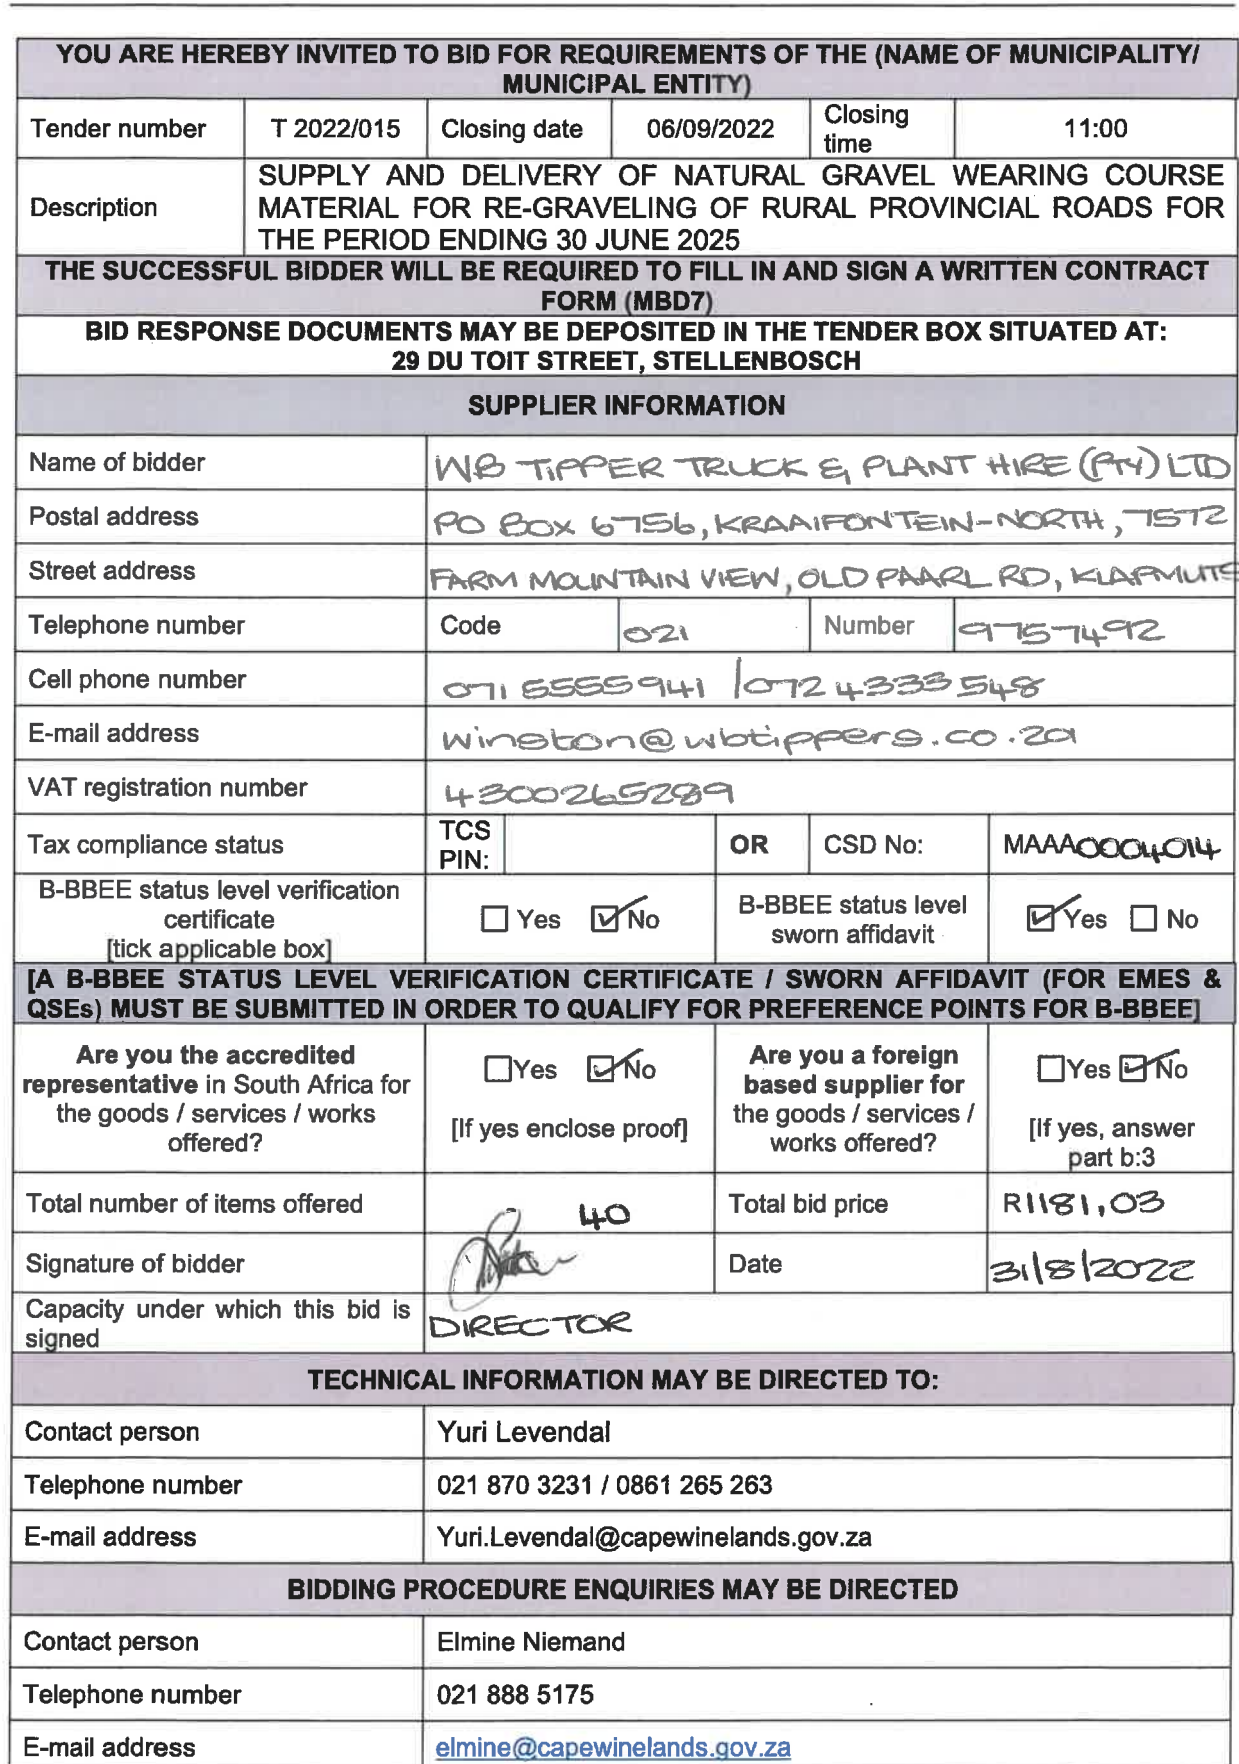 YOU ARE HEREBY INVITED TO BID FOR REQUIREMENTS OF THE (NAME OF MUNICIPALITY/
MUNICIPAL ENTITY)
Tender number T 2022/015 Closing date 06/09/2022 Closing time 11:00
Description
SUPPLY AND DELIVERY OF NATURAL GRAVEL WEARING COURSE
MATERIAL FOR RE-GRAVELING OF RURAL PROVINCIAL ROADS FOR
THE PERIOD ENDING 30 JUNE 2025
THE SUCCESSFUL BIDDER WILL BE REQUIRED TO FILL IN AND SIGN A WRITTEN CONTRACT
FORM (MBD7)
BID RESPONSE DOCUMENTS MAY BE DEPOSITED IN THE TENDER BOX SITUATED AT:
29 DU TOIT STREET, STELLENBOSCH
SUPPLIER INFORMATION
Name of bidder WB TIPPER TRUCK & PLANT HIRE (PTY) LTD
Postal address PO BOX 6756, KRAAIFONTEIN-NORTH, 7572
Street address FARM MOUNTAIN VIEW, OLD PAARL RD, KLAPMUTS
Telephone number Code 021 Number 9757492
Cell phone number 071 5555941 / 072 4333 548
E-mail address winston@wbtippers.co.za
VAT registration number 4300265289
Tax compliance status TCS PIN: OR CSD No: MAAA0004014
B-BBEE status level verification
certificate
[tick applicable box]
Yes No
B-BBEE status level
sworn affidavit
Yes No
[A B-BBEE STATUS LEVEL VERIFICATION CERTIFICATE / SWORN AFFIDAVIT (FOR EMES &
QSEs) MUST BE SUBMITTED IN ORDER TO QUALIFY FOR PREFERENCE POINTS FOR B-BBEE]
Are you the accredited
representative in South Africa for
the goods / services / works
offered?
Yes No
[If yes enclose proof]
Are you a foreign
based supplier for
the goods / services /
works offered?
Yes No
[If yes, answer
part b:3
Total number of items offered 40 Total bid price R1181,03
Signature of bidder Date 31/8/2022
Capacity under which this bid is
signed
DIRECTOR
TECHNICAL INFORMATION MAY BE DIRECTED TO:
Contact person Yuri Levendal
Telephone number 021 870 3231 / 0861 265 263
E-mail address Yuri.Levendal@capewinelands.gov.za
BIDDING PROCEDURE ENQUIRIES MAY BE DIRECTED
Contact person Elmine Niemand
Telephone number 021 888 5175
E-mail address elmine@capewinelands.gov.za